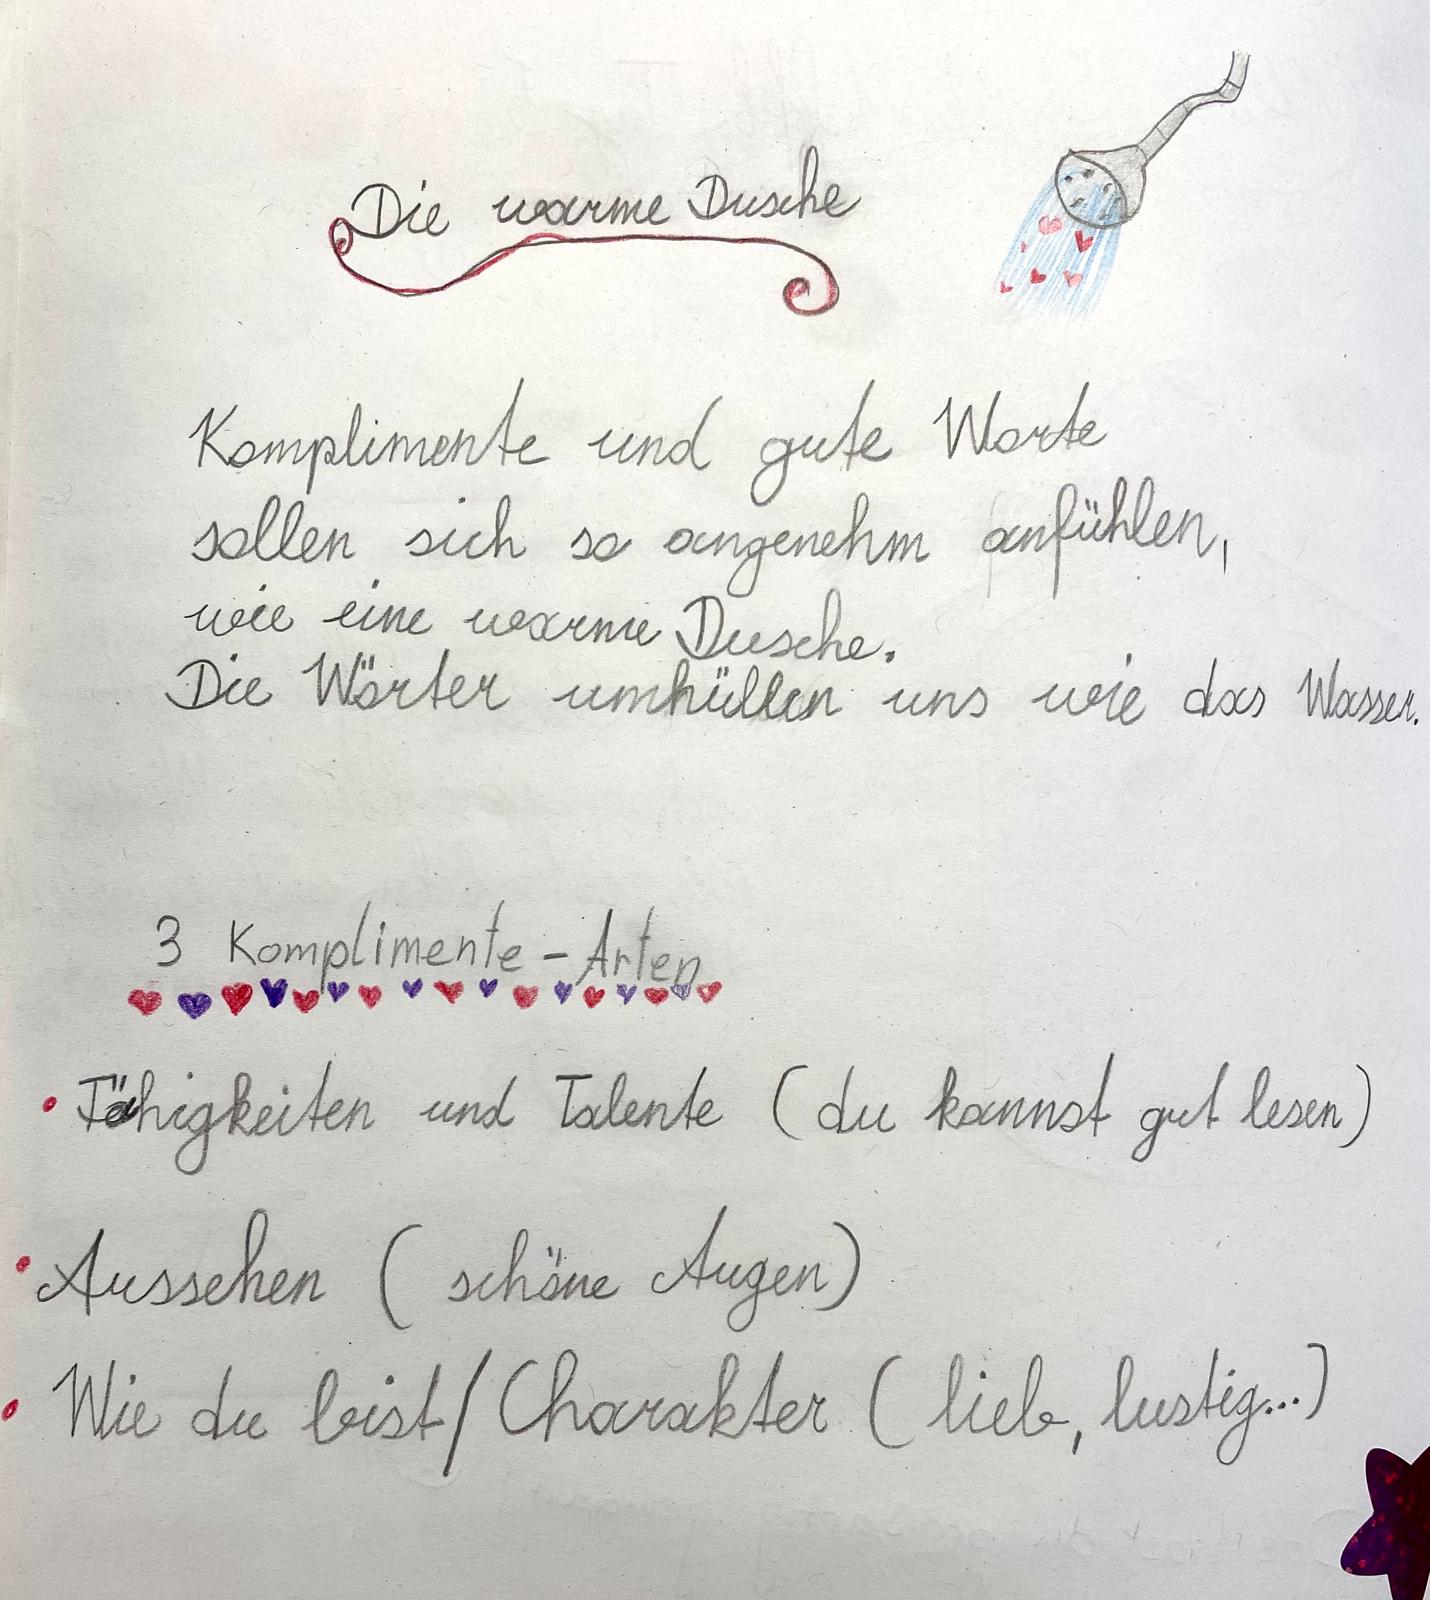 Die warme Dusche
Komplimente und gute Worte
sollen sich so angenehm anfühlen,
wie eine warme Dusche.
Die Wörter umhüllen uns wie das Wasser.
3 Komplimente - Arten
• Fähigkeiten und Talente (du kannst gut lesen)
• Aussehen (schöne Augen)
• Wie du bist/Charakter (lieb, lustig...)